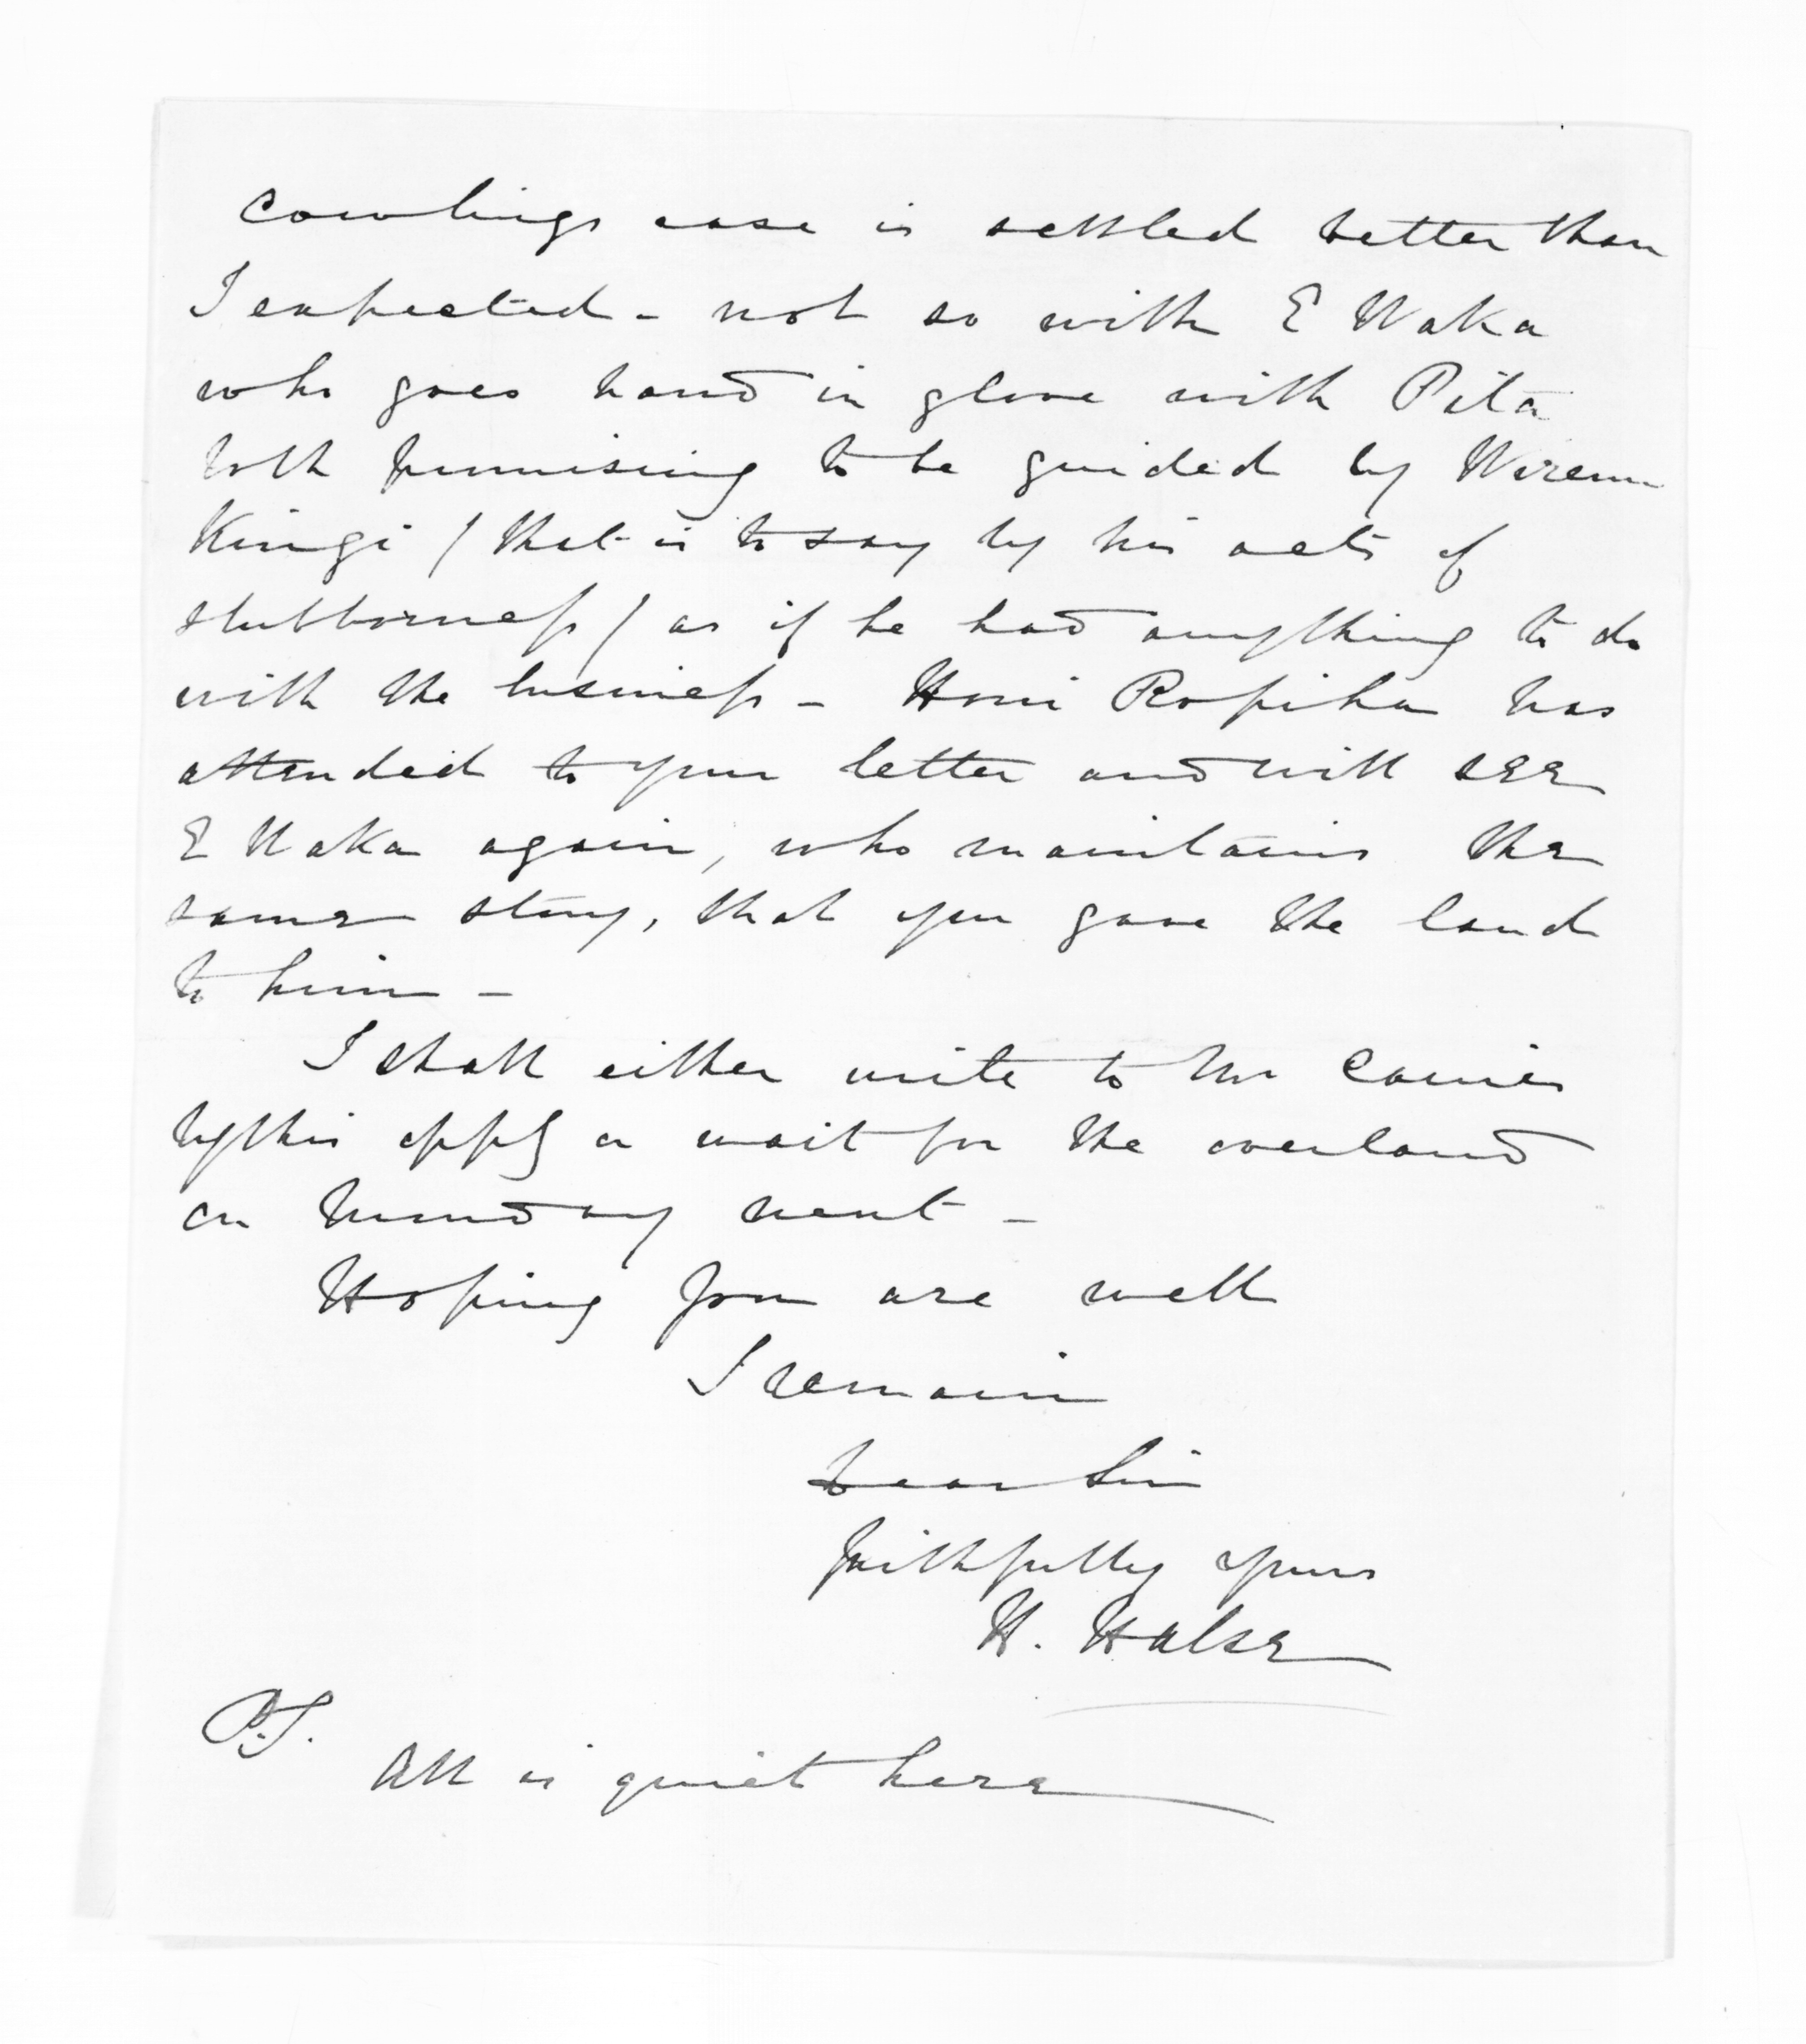 Cowlings case is settled better than
I expected - not so with E Waka
who goes hand in glove with Pita
both promising to be guided by Wiremu
Kingi / that is to say by his acts of
stubborness / as if he had anything to do
with the business - Honi Ropiha has
attended to your letter and will see
E Waka again, who maintains the
same story, that you gave the land
to him -
I shall either write to Mr
by this oppy or wait for the overland
on Monday next -
Hoping you are well
I remain
Dear Sir
faithfully yours
H. Halse
P.S.
All is quiet here